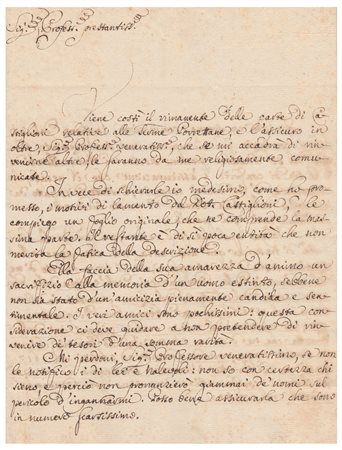 Sig.r Profess.r prestantiss.mo
Viene costì il rimanente delle carte di Ca-
stiglioni relative alle Terme Porrettane, e l'assicuro in
oltre, Sig.r Profess.r veneratiss.mo, che se mi accadrà di rin-
venirne altre, le faranno da me religiosamente comu-
nicate.
In vece di schierarle io medesimo, come ho pro-
messo, i motivi di lamento del Dott. Castiglioni, le
compiego un foglio originale, che ne comprende la mas-
sima parte. Il restante è di sì poca entità che non
merita la fatica della descrizione.
Ella faccia della sua amarezza d'animo un
sacrifizio alla memoria d'un uomo estinto, sebbene
non sia stato d'un'amicizia pienamente candida e sen-
timentale. I veri amici sono pochissimi: questa con-
siderazione ci deve guidare a non pretendere di rin-
venire de' tesori d'una somma rarità.
Mi perdoni, Sig.r Professore veneratissimo, se non
le notifico i di lei malevoli: non so con certezza chi
sieno, e perciò non pronunzierò giammai de' nomi sul
pericolo d'ingannarmi. Posso bensì assicurarla che sono
in numero scarsissimo.